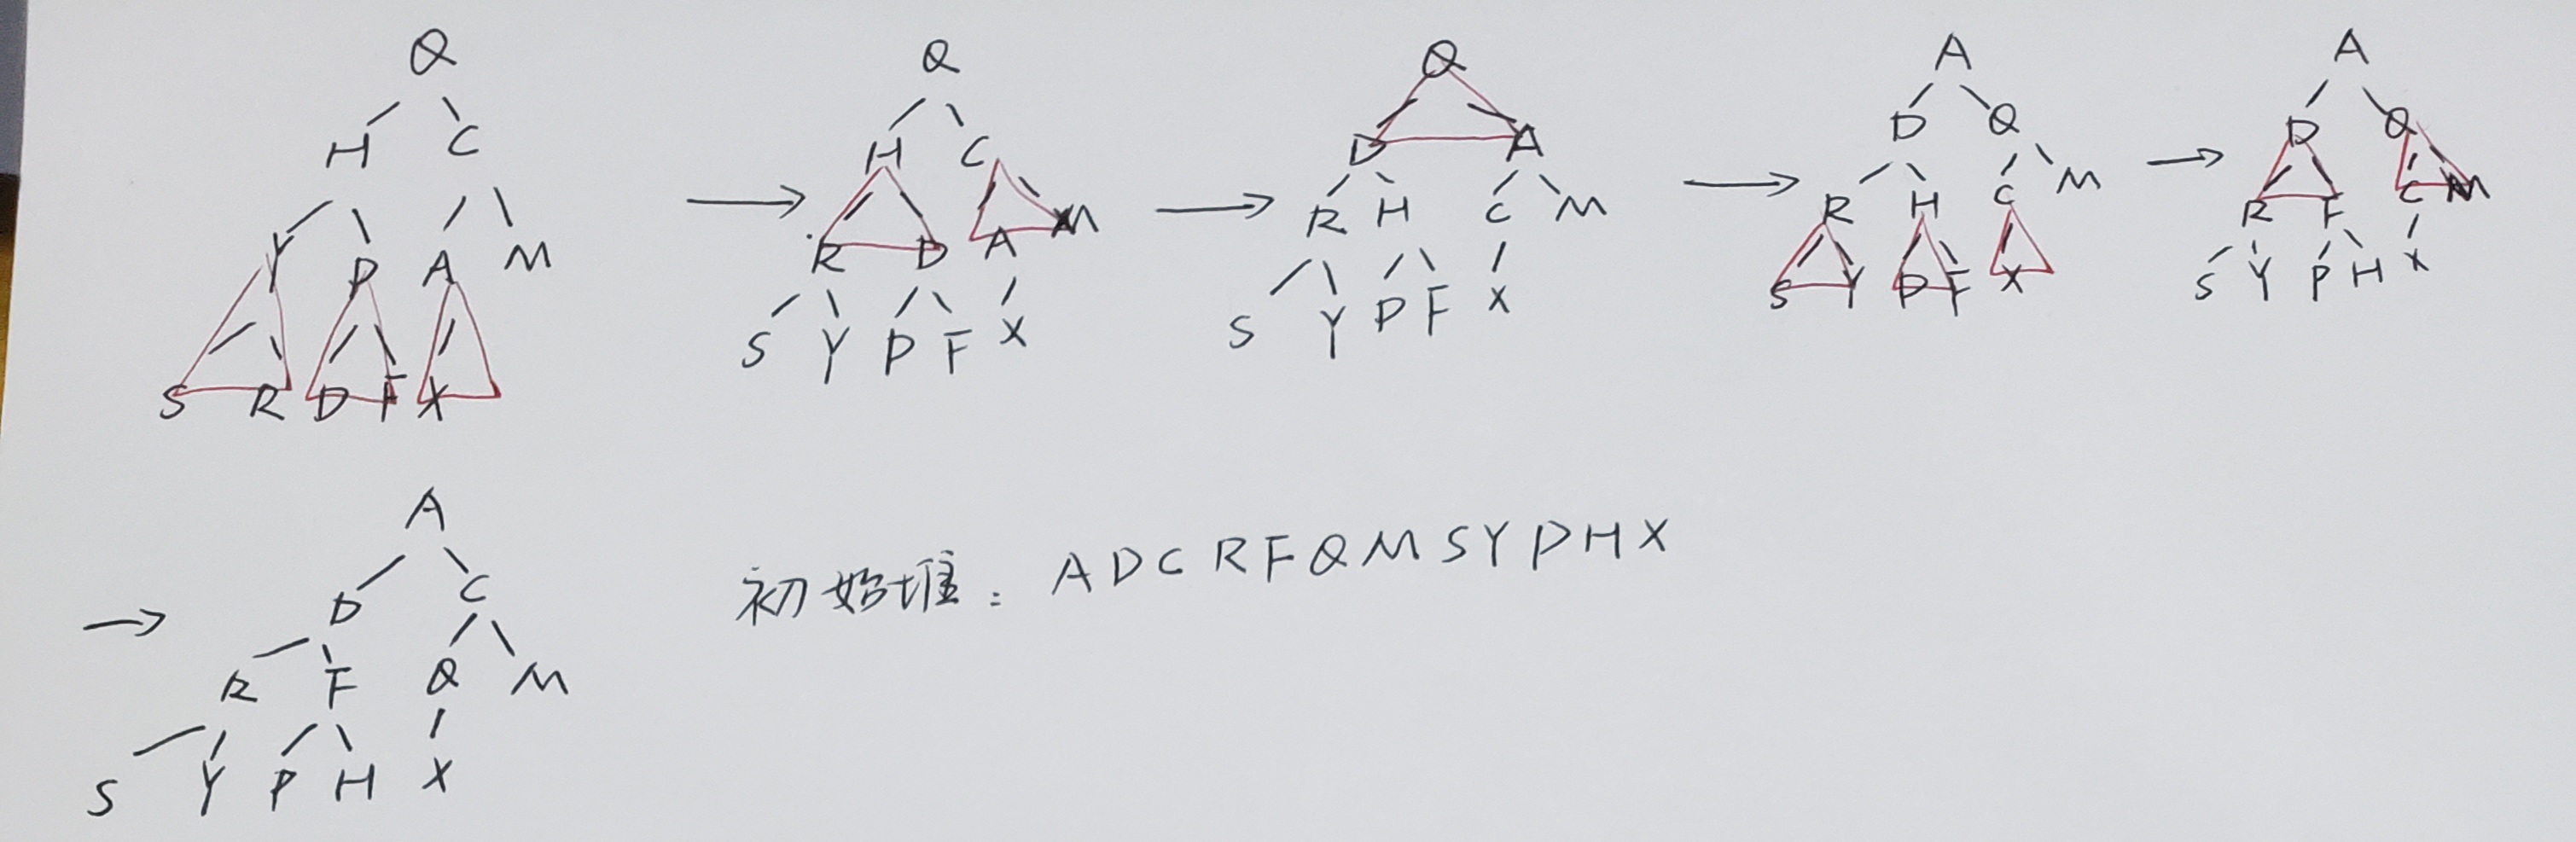 Q
H C
Y P A M
S R D F X
→
Q
H C
R D A M
S Y P F X
→
Q
D A
R H C M
S Y P F X
→
A
D Q
R H C M
S Y P F X
→
A
D Q
R F C M
S Y P H X
→
A
D C
R F Q M
S Y P H X
初始堆：A D C R F Q M S Y P H X